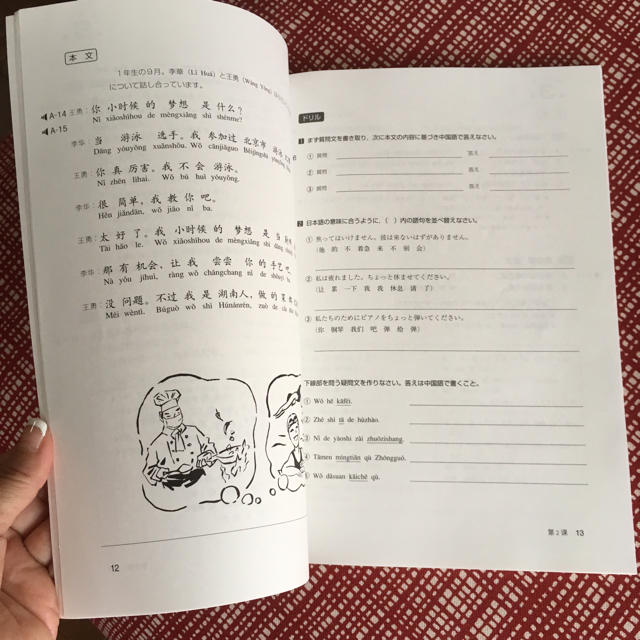 本文
1年生の9月。李華（Lǐ Huá）と王勇（Wáng Yǒng）
について話し合っています。
A-14 王勇：你 小时候 的 梦想 是 什么？
Nǐ xiǎoshíhou de mèngxiǎng shì shénme?
A-15
李华：当 游泳 选手。我 参加过 北京市
Dāng yóuyǒng xuǎnshǒu. Wǒ cānjiāguo Běijīngshì
王勇：你 真 厉害。我 不 会 游泳。
Nǐ zhēn lìhai. Wǒ bú huì yóuyǒng.
李华：很 简单，我 教 你 吧。
Hěn jiǎndān, wǒ jiāo nǐ ba.
王勇：太 好 了。我 小时候 的 梦想 是 当
Tài hǎo le. Wǒ xiǎoshíhou de mèngxiǎng shì dāng
李华：那 有 机会，让 我 尝尝 你 的 手艺 吧。
Nà yǒu jīhuì, ràng wǒ chángchang nǐ de shǒuyì
王勇：没 问题。不过 我 是 湖南人，做 的
Méi wèntí. Búguò wǒ shì Húnánrén, zuò de
12
ドリル
1 まず質問文を書き取り、次に本文の内容に基づき中国語で答えなさい。
① 質問 答え
② 質問 答え
③ 質問 答え
2 日本語の意味に合うように，（ ）内の語句を並べ替えなさい。
① 焦ってはいけません。彼は来ないはずがありません。
（他 的 不 着急 来 不 别 会）
② 私は疲れました。ちょっと休ませてください。
（让 累 一下 我 我 休息 请 了）
③ 私たちのためにピアノをちょっと弾いてください。
（你 钢琴 我们 吧 弹 给 弹）
下線部を問う疑問文を作りなさい。答えは中国語で書くこと。
① Wǒ hē kāfēi.
② Zhè shì tā de hùzhào.
③ Nǐ de yàoshi zài zhuōzishang.
④ Tāmen míngtiān qù Zhōngguó.
⑤ Wǒ dǎsuan kāichē qù.
第2課 13